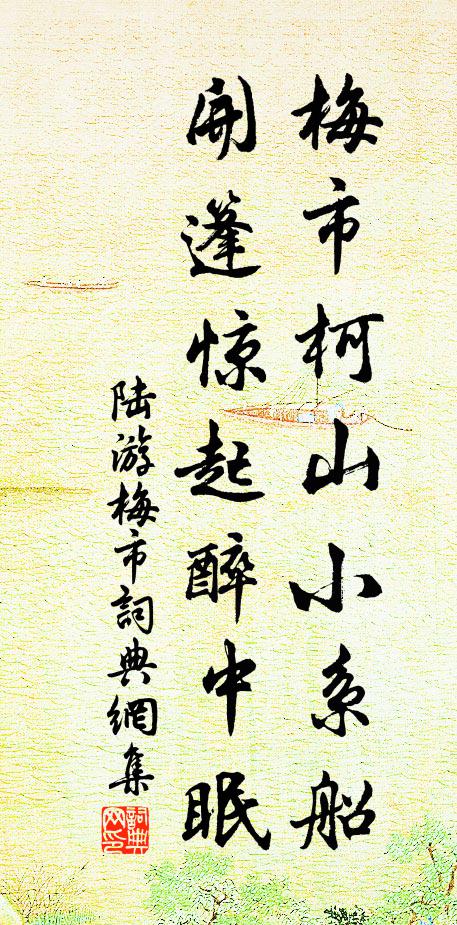 梅市柯山小系船
開篷惊起醉中眠
陆游梅市詞典網集
詞典网印